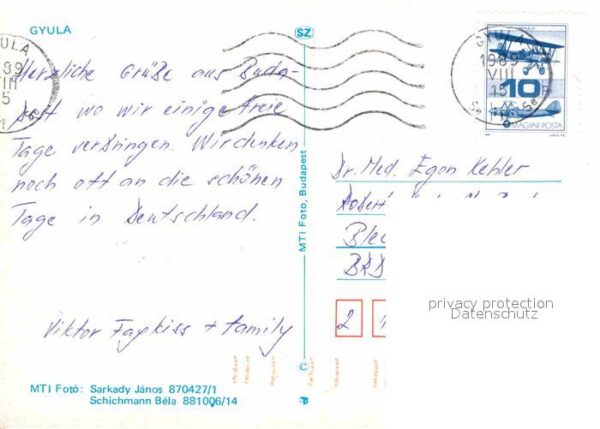 GYULA
SZ
GYULA
1989
VIII
15
10 Ft
MAGYAR POSTA
Herzliche Grüße aus Buda-
pest wo wir einige freie
Tage verbringen. Wir denken
noch oft an die schönen
Tage in Deutschland.
Viktor + family
MTI Foto, Budapest
©
Dr. Med. Egon Kehler
BRD
2
privacy protection
Datenschutz
MTI Fotó: Sarkady János 870427/1
Schichmann Béla 881006/14